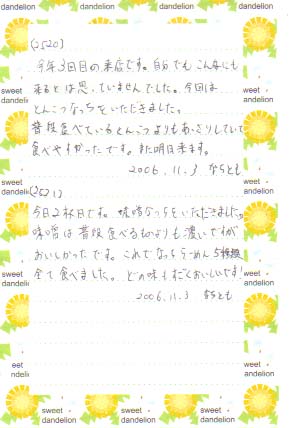 sweet dandelion
sweet dandelion
sweet dandelion
sweet dandelion
(2520)
今年3回目の来店です。自分でもこんなにも
来るとは思っていませんでした。今回は
とんこつなっちをいただきました。
普段食べているとんこつよりもあっさりしていて
食べやすかったです。また明日来ます。
2006.11.3 なちとも
(2521)
今日2杯目です。味噌なっちをいただきました。
味噌は普段食べるものよりも濃いですが
おいしかったです。これでなっちらーめん5種類
全て食べました。どの味もすごくおいしいです!
2006.11.3 なちとも
sweet dandelion
sweet dandelion
sweet dandelion
sweet dandelion
sweet dandelion
sweet dandelion
sweet dandelion
sweet dandelion